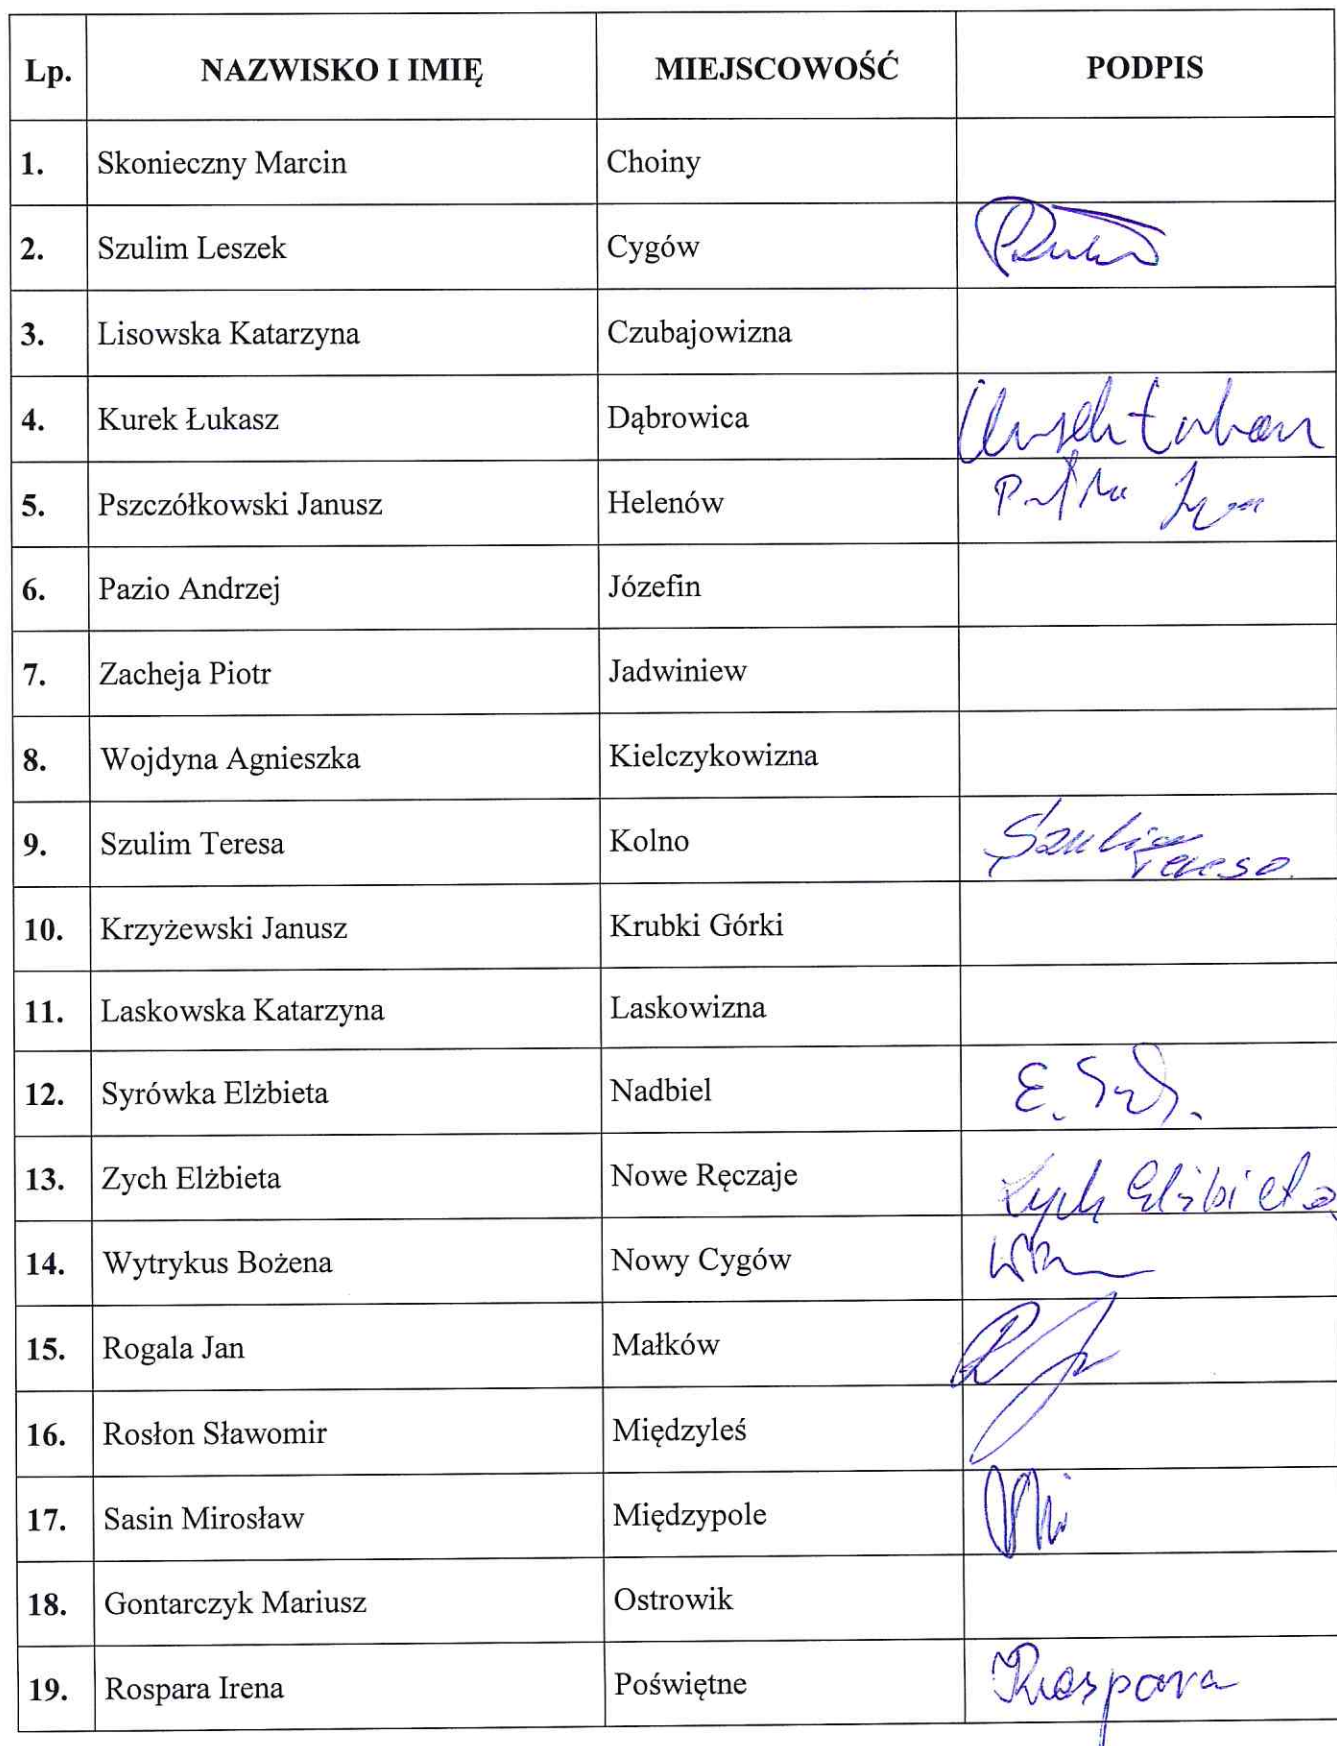 Lp. NAZWISKO I IMIĘ MIEJSCOWOŚĆ PODPIS
1. Skonieczny Marcin Choiny
2. Szulim Leszek Cygów
3. Lisowska Katarzyna Czubajowizna
4. Kurek Łukasz Dąbrowica
5. Pszczółkowski Janusz Helenów
6. Pazio Andrzej Józefin
7. Zacheja Piotr Jadwiniew
8. Wojdyna Agnieszka Kielczykowizna
9. Szulim Teresa Kolno Szulim Teresa
10. Krzyżewski Janusz Krubki Górki
11. Laskowska Katarzyna Laskowizna
12. Syrówka Elżbieta Nadbiel
13. Zych Elżbieta Nowe Ręczaje Zych Elżbieta
14. Wytrykus Bożena Nowy Cygów
15. Rogala Jan Małków
16. Rosłon Sławomir Międzyleś
17. Sasin Mirosław Międzypole
18. Gontarczyk Mariusz Ostrowik
19. Rospara Irena Poświętne Rospara